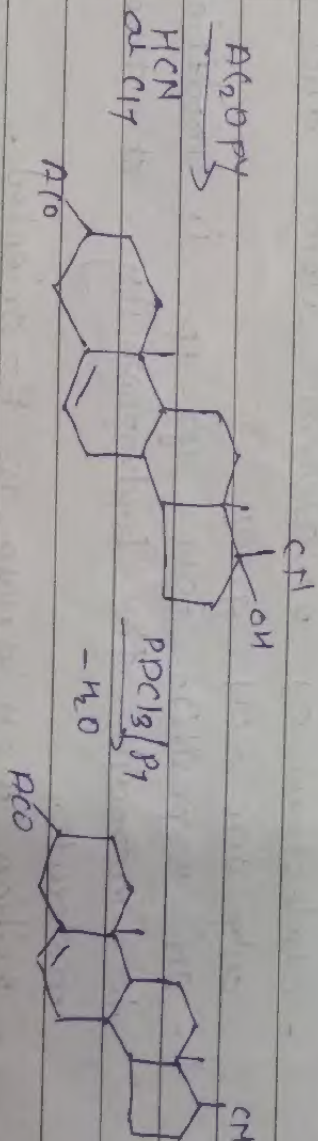 Ac₂O Py
HCN
AcO
CN
OH
POCl₃/Py
-H₂O
AcO
CN